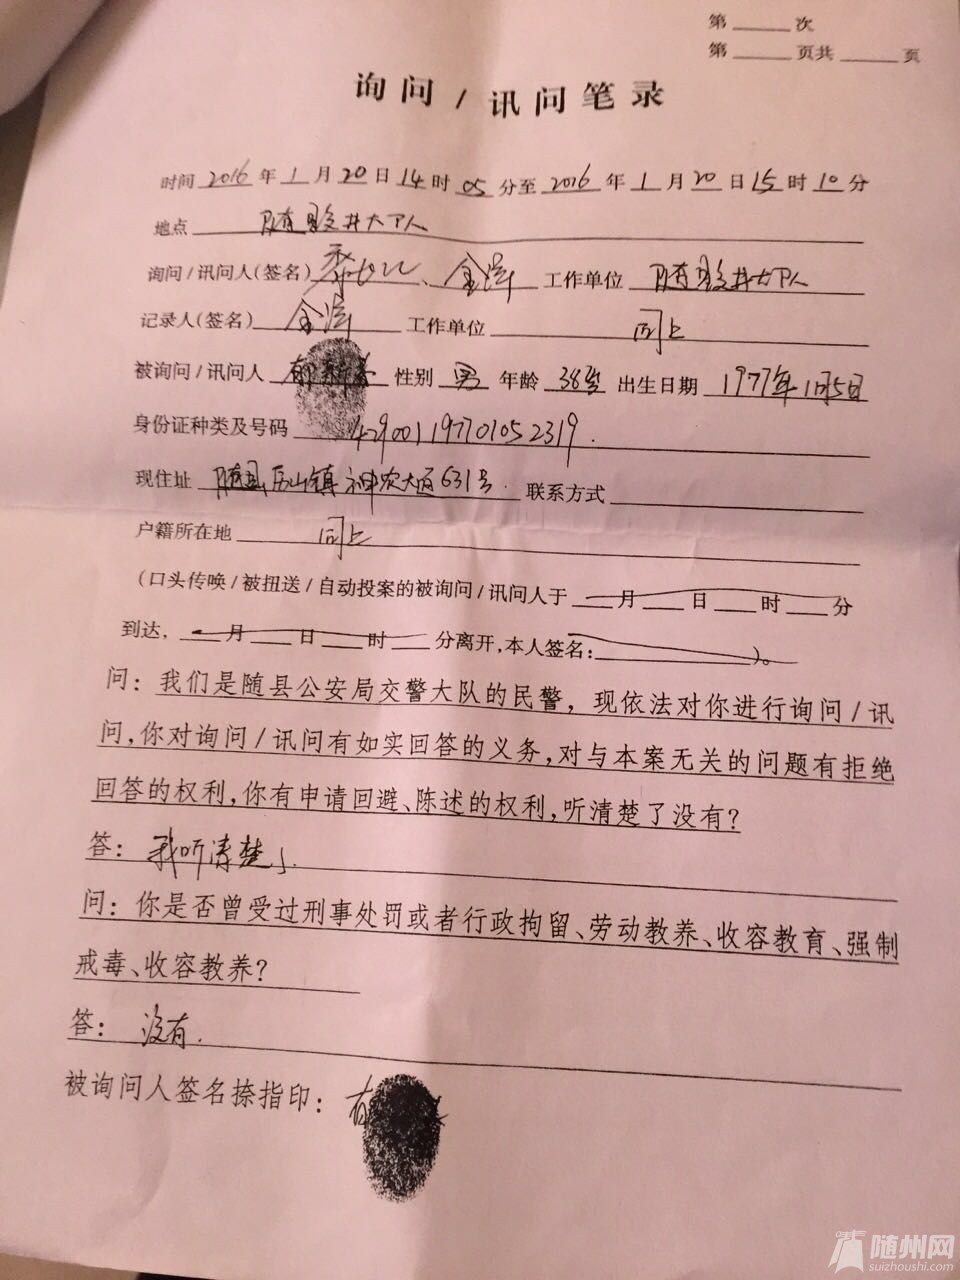 第______次
第______页共______页
询问/讯问笔录
时间 2016 年 1 月 20 日 14 时 05 分至 2016 年 1 月 20 日 15 时 10 分
地点
询问/讯问人(签名) 、金 工作单位
记录人(签名) 金 工作单位 同上
被询问/讯问人 性别 男 年龄 38岁 出生日期 1977年1月5日
身份证种类及号码 429001197701052319.
现住址 随县历山镇神农大道631号. 联系方式
户籍所在地 同上
(口头传唤/被扭送/自动投案的被询问/讯问人于___月___日___时___分
到达,___月___日___时___分离开,本人签名:______)。
问:我们是随县公安局交警大队的民警,现依法对你进行询问/讯
问,你对询问/讯问有如实回答的义务,对与本案无关的问题有拒绝
回答的权利,你有申请回避、陈述的权利,听清楚了没有?
答:我听清楚了.
问:你是否曾受过刑事处罚或者行政拘留、劳动教养、收容教育、强制
戒毒、收容教养?
答:没有.
被询问人签名捺指印:
随州网
suizhoushi.com